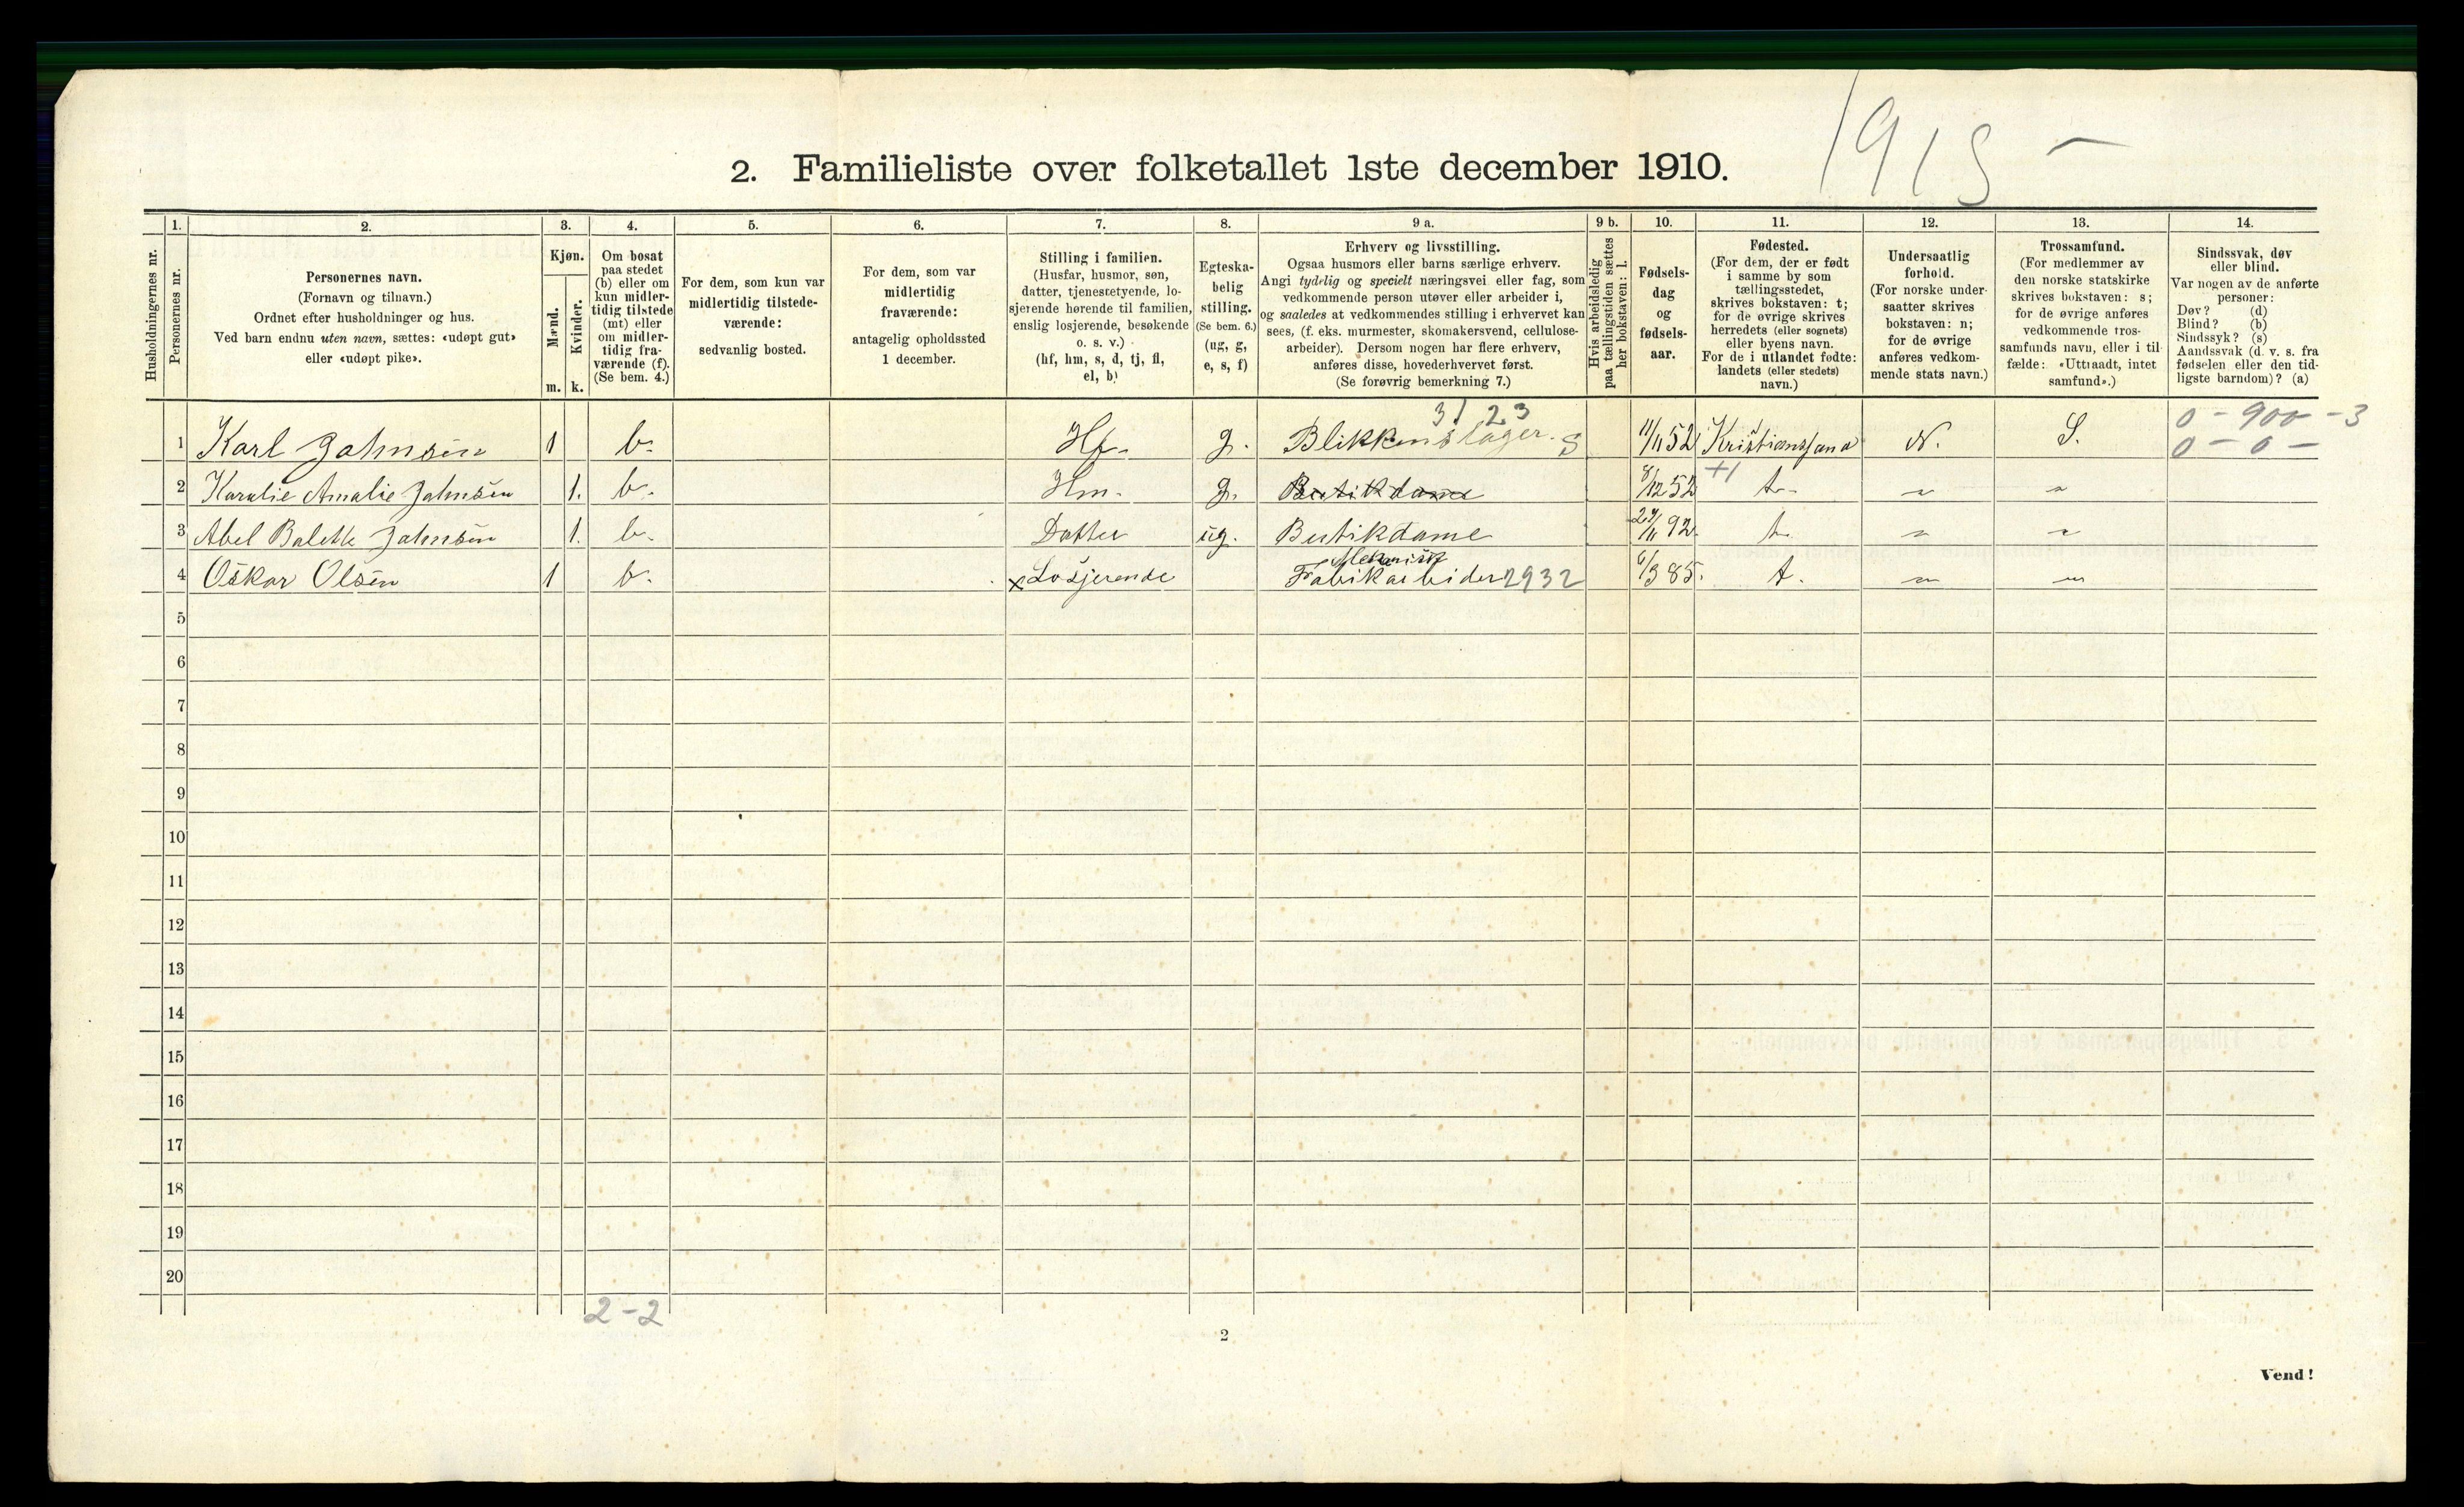 1915 —
2. Familieliste over folketallet 1ste december 1910.
1. 2. 3. 4. 5. 6. 7. 8. 9 a. 9 b. 10. 11. 12. 13. 14.
Husholdningernes nr.
Personernes nr.
Personernes navn.
(Fornavn og tilnavn.)
Ordnet efter husholdninger og hus.
Ved barn endnu uten navn, sættes: «udøpt gut»
eller «udøpt pike».
Kjøn.
Mænd.
Kvinder.
m. k.
Om bosat
paa stedet
(b) eller om
kun midler-
tidig tilstede
(mt) eller
om midler-
tidig fra-
værende (f).
(Se bem. 4.)
For dem, som kun var
midlertidig tilstede-
værende:
sedvanlig bosted.
For dem, som var
midlertidig
fraværende:
antagelig opholdssted
1 december.
Stilling i familien.
(Husfar, husmor, søn,
datter, tjenestetyende, lo-
sjerende hørende til familien,
enslig losjerende, besøkende
o. s. v.)
(hf, hm, s, d, tj, fl,
el, b)
Egteska-
belig
stilling.
(Se bem. 6.)
(ug, g,
e, s, f)
Erhverv og livsstilling.
Ogsaa husmors eller barns særlige erhverv.
Angi tydelig og specielt næringsvei eller fag, som
vedkommende person utøver eller arbeider i,
og saaledes at vedkommendes stilling i erhvervet kan
sees, (f. eks. murmester, skomakersvend, cellulose-
arbeider). Dersom nogen har flere erhverv,
anføres disse, hovederhvervet først.
(Se forøvrig bemerkning 7.)
Hvis arbeidsledig
paa tællingstiden sættes
her bokstaven: l.
Fødsels-
dag
og
fødsels-
aar.
Fødested.
(For dem, der er født
i samme by som
tællingsstedet,
skrives bokstaven: t;
for de øvrige skrives
herredets (eller sognets)
eller byens navn.
For de i utlandet fødte:
landets (eller stedets)
navn.)
Undersaatlig
forhold.
(For norske under-
saatter skrives
bokstaven: n;
for de øvrige
anføres vedkom-
mende stats navn.)
Trossamfund.
(For medlemmer av
den norske statskirke
skrives bokstaven: s;
for de øvrige anføres
vedkommende tros-
samfunds navn, eller i til-
fælde: «Uttraadt, intet
samfund».)
Sindssvak, døv
eller blind.
Var nogen av de anførte
personer:
Døv? (d)
Blind? (b)
Sindssyk? (s)
Aandssvak (d. v. s. fra
fødselen eller den tid-
ligste barndom)? (a)
3123 0 - 900 - 3
1 Karl Jahnsen 1 b. Hf. g. Blikkenslager. S 11/11 52 Kristianssand N. S. 0 - 0 -
+1
2 Karalie Amalie Jahnsen 1. b. Hm. g. Butikdame 8/12 52 t. " "
3 Abel Bolette Jahnsen 1. b. Datter ug. Butikdame 24/11 92. t. " "
Mekanisk
4 Oskar Olsen 1 b. x Losjerende Fabrikarbeider 2932 6/3 85. t. " "
5
6
7
8
9
10
11
12
13
14
15
16
17
18
19
20
2 - 2
2
Vend!